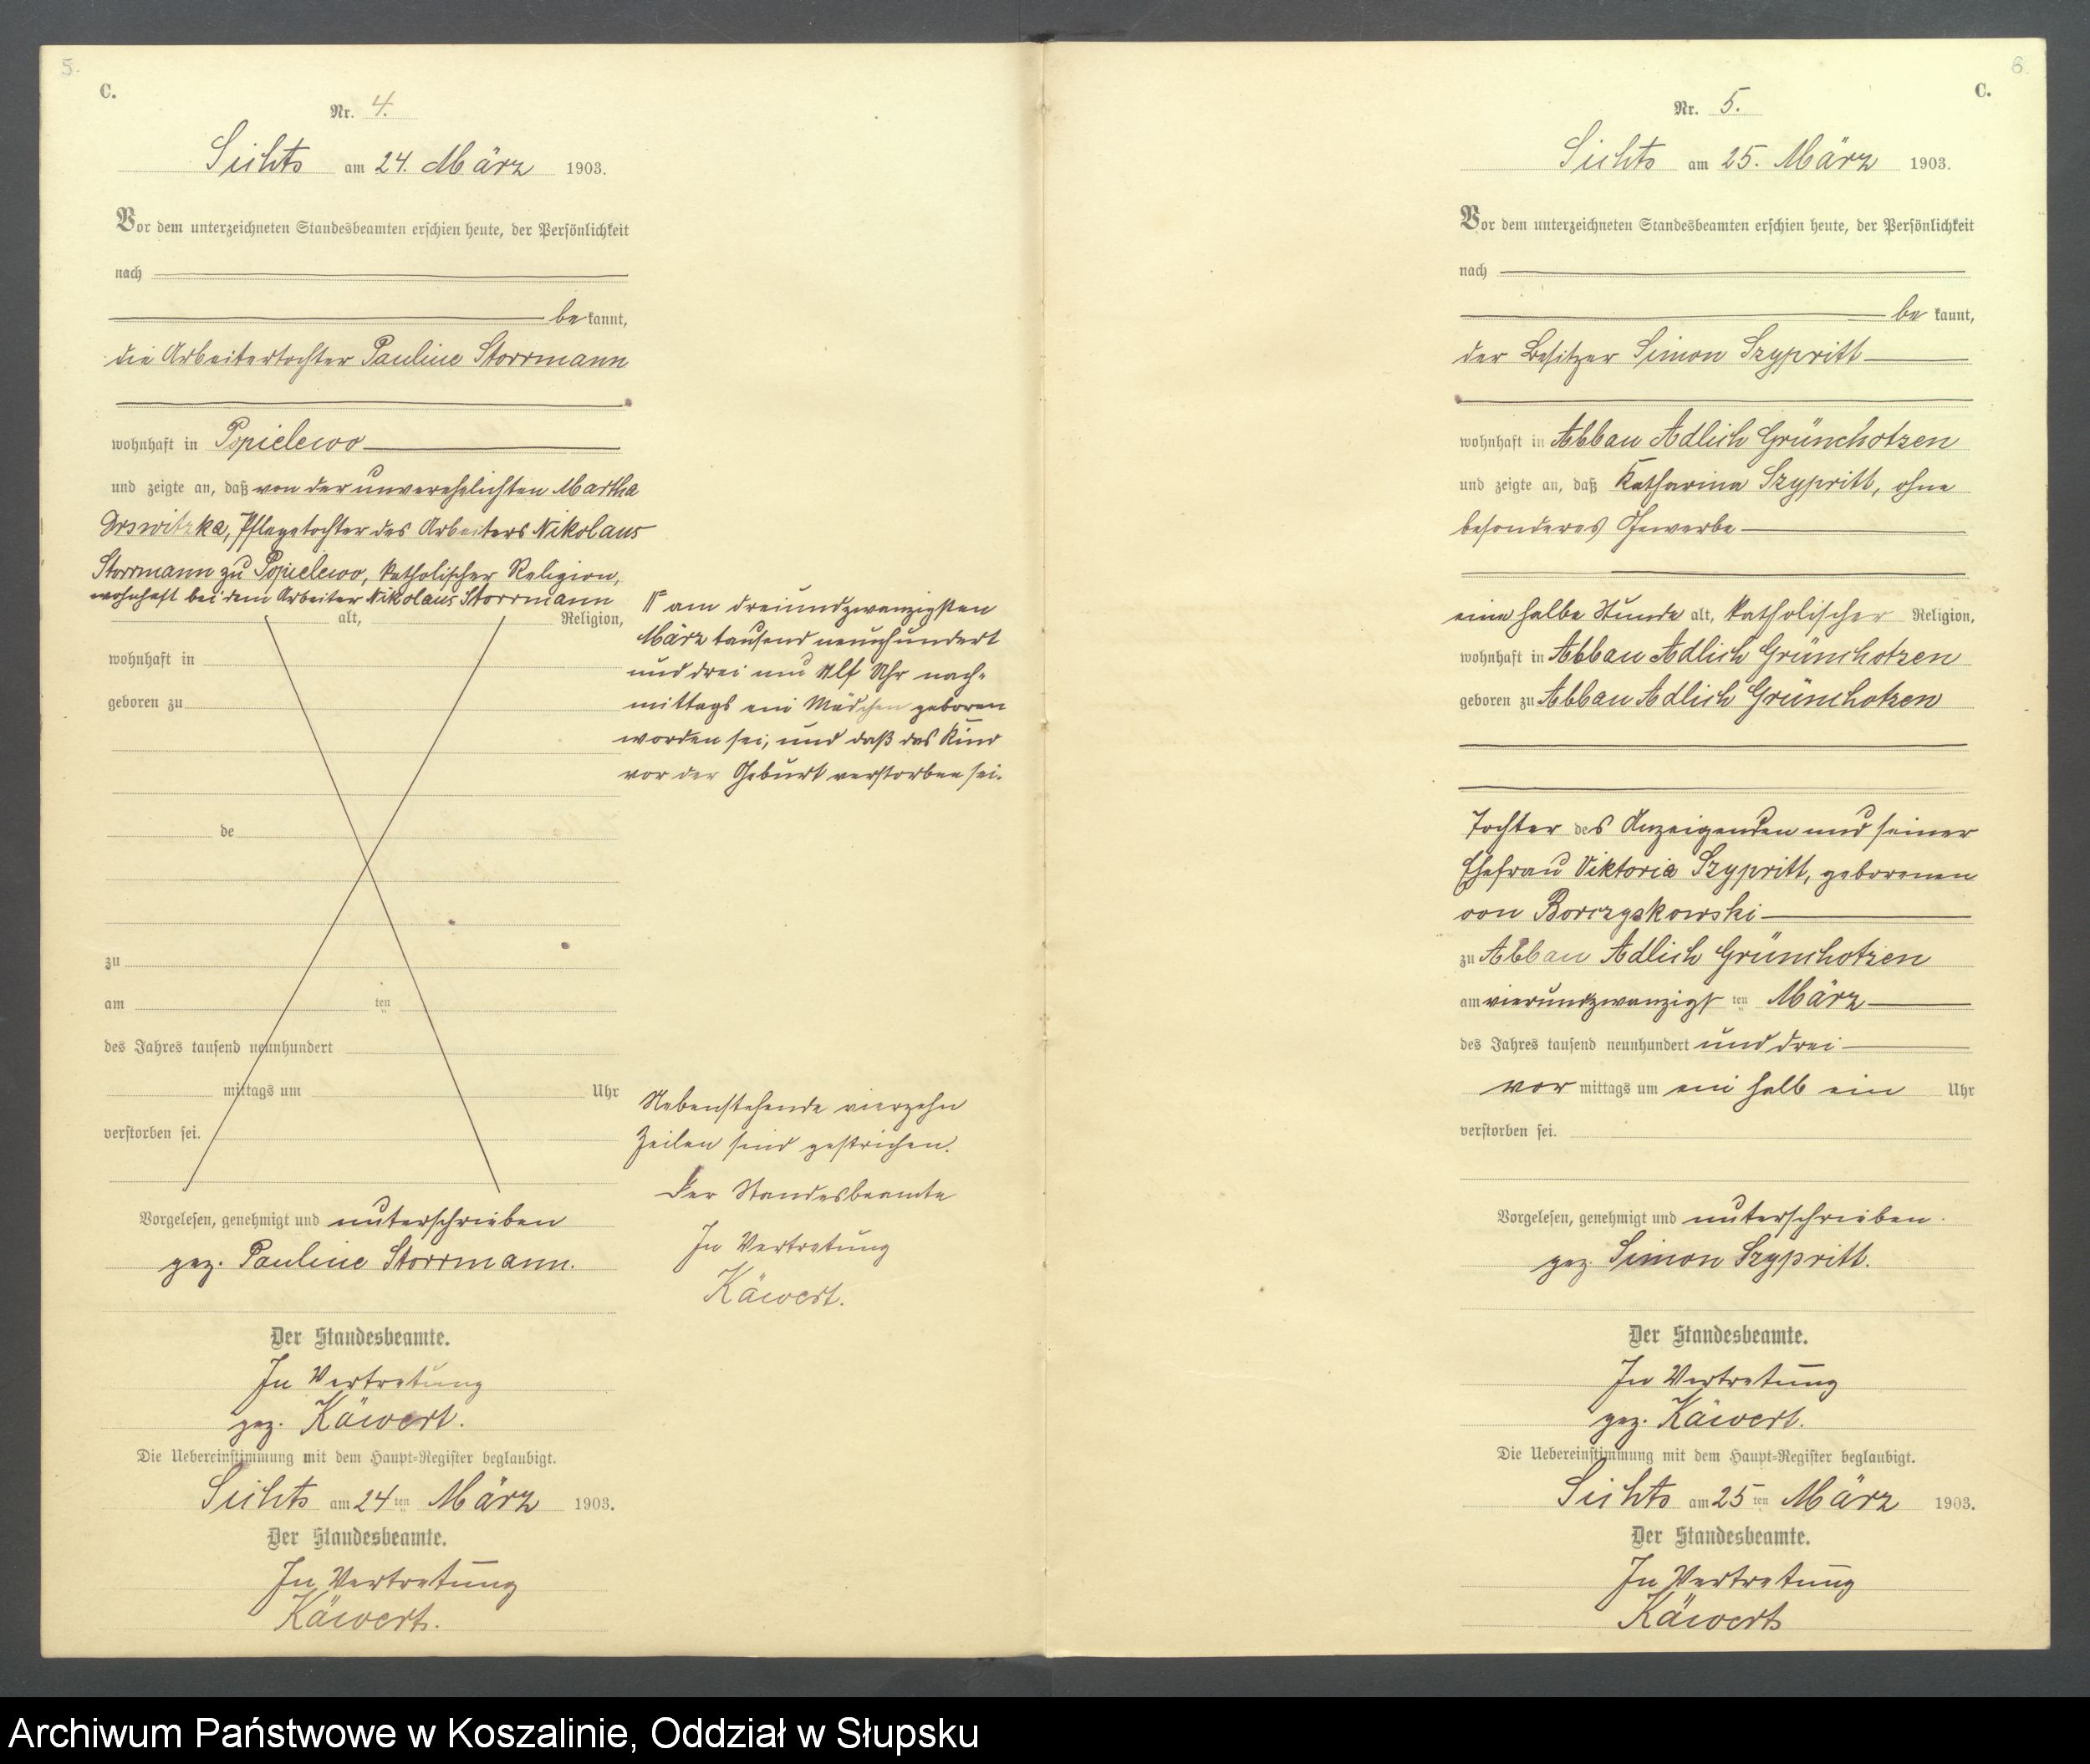 5.
C.
Nr. 4.
Sichts am 24. März 1903.
Vor dem unterzeichneten Standesbeamten erschien heute, der Persönlichkeit
nach
be kannt,
die Arbeitertochter Pauline Storrmann
wohnhaft in Popielewo
und zeigte an, daß von der unverehelichten Martha
Orswitzka, Pflegetochter des Arbeiters Nikolaus
Storrmann zu Popielewo, katholischer Religion,
wohnhaft bei dem Arbeiter Nikolaus Storrmann
alt, Religion,
wohnhaft in
geboren zu
de
zu
am ten
des Jahres tausend neunhundert
mittags um Uhr
verstorben sei.
am dreiundzwanzigsten
März tausend neunhundert
und drei um elf Uhr nach-
mittags ein Mädchen geboren
worden sei, und daß das Kind
vor der Geburt verstorben sei.
Nebenstehende vierzehn
Zeilen sind gestrichen.
Der Standesbeamte
In Vertretung
Käwert.
Vorgelesen, genehmigt und unterschrieben
gez. Pauline Storrmann.
Der Standesbeamte.
In Vertretung
gez. Käwert.
Die Uebereinstimmung mit dem Haupt-Register beglaubigt.
Sichts am 24 ten März 1903.
Der Standesbeamte.
In Vertretung
Käwert.
6.
C.
Nr. 5.
Sichts am 25. März 1903.
Vor dem unterzeichneten Standesbeamten erschien heute, der Persönlichkeit
nach
be kannt,
der Besitzer Simon Szypritt
wohnhaft in Abbau Adlich Grünchotzen
und zeigte an, daß Katharina Szypritt, ohne
besonderes Gewerbe
eine halbe Stunde alt, katholischer Religion,
wohnhaft in Abbau Adlich Grünchotzen
geboren zu Abbau Adlich Grünchotzen
Tochter des Anzeigenden und seiner
Ehefrau Viktoria Szypritt, geborenen
von Borczyskowski
zu Abbau Adlich Grünchotzen
am vierundzwanzigst ten März
des Jahres tausend neunhundert und drei
vor mittags um ein halb ein Uhr
verstorben sei.
Vorgelesen, genehmigt und unterschrieben.
gez. Simon Szypritt.
Der Standesbeamte.
In Vertretung
gez. Käwert.
Die Uebereinstimmung mit dem Haupt-Register beglaubigt.
Sichts am 25 ten März 1903.
Der Standesbeamte.
In Vertretung
Käwert
Archiwum Państwowe w Koszalinie, Oddział w Słupsku